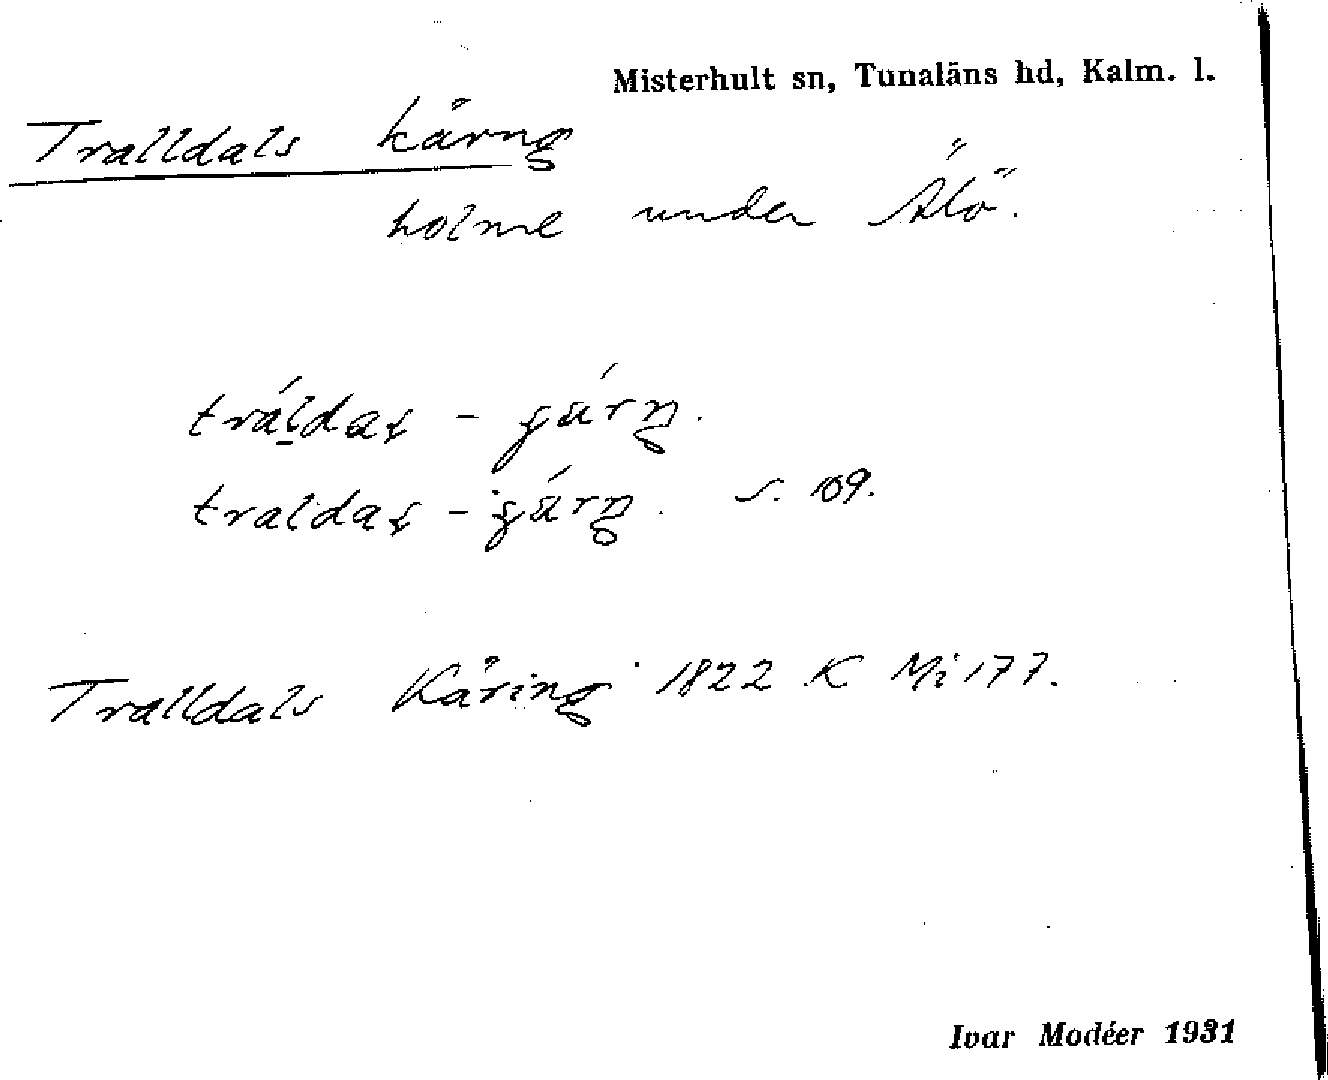 Misterhult sn, Tunaläns hd, Kalm. l.
Tralldals kärng
holme under Älö.
s. 109.
Tralldals Käring 1822 K Mi 177.
Ivar Modéer 1931